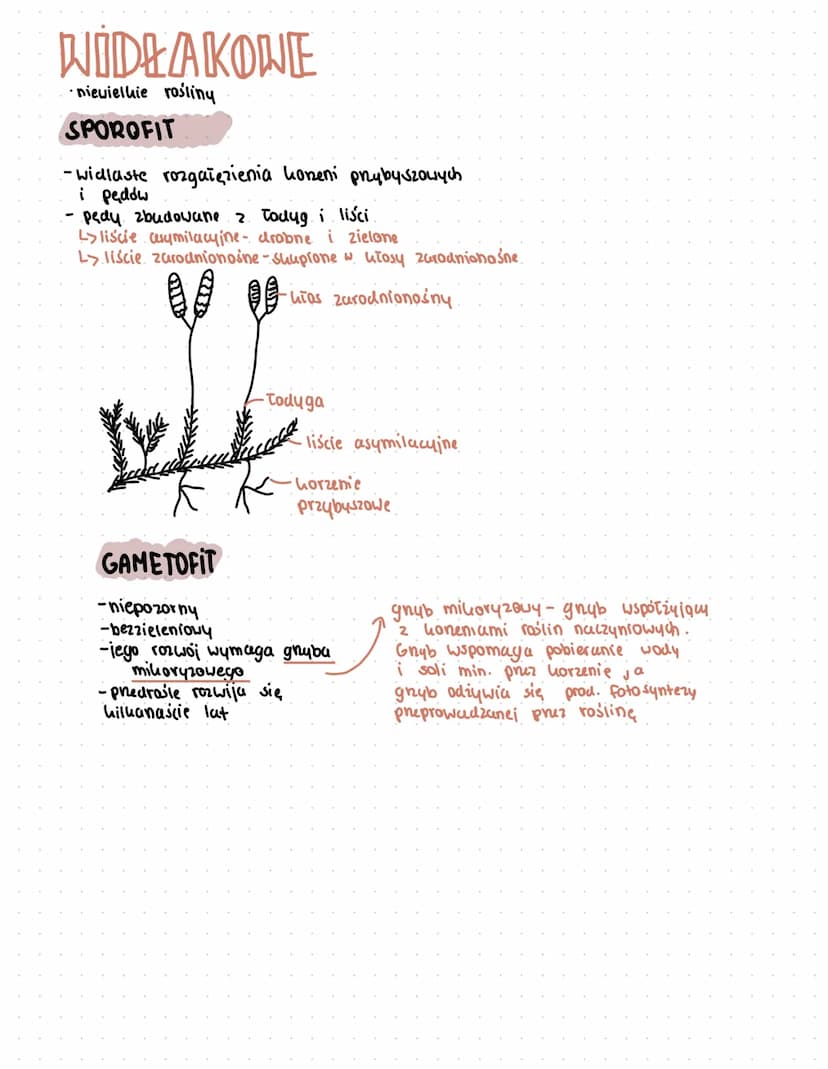 WIDŁAKOWE
· niewielkie rośliny
SPOROFIT
- widlaste rozgałęzienia korzeni przybyszowych
i pędów
- pędy zbudowane z łodyg i liści
↳ liście asymilacyjne - drobne i zielone
↳ liście zarodnionośne - skupione w kłosy zarodnionośne
kłos zarodnionośny
łodyga
liście asymilacyjne
korzenie
przybyszowe
GAMETOFIT
- niepozorny
- bezzieleniowy
- jego rozwój wymaga grzyba
mikoryzowego
- przedrośle rozwija się
kilkanaście lat
grzyb mikoryzowy - grzyb współżyjący
z korzeniami roślin naczyniowych.
Grzyb wspomaga pobieranie wody
i soli min. przez korzenie, a
grzyb odżywia się prod. fotosyntezy
przeprowadzanej przez roślinę